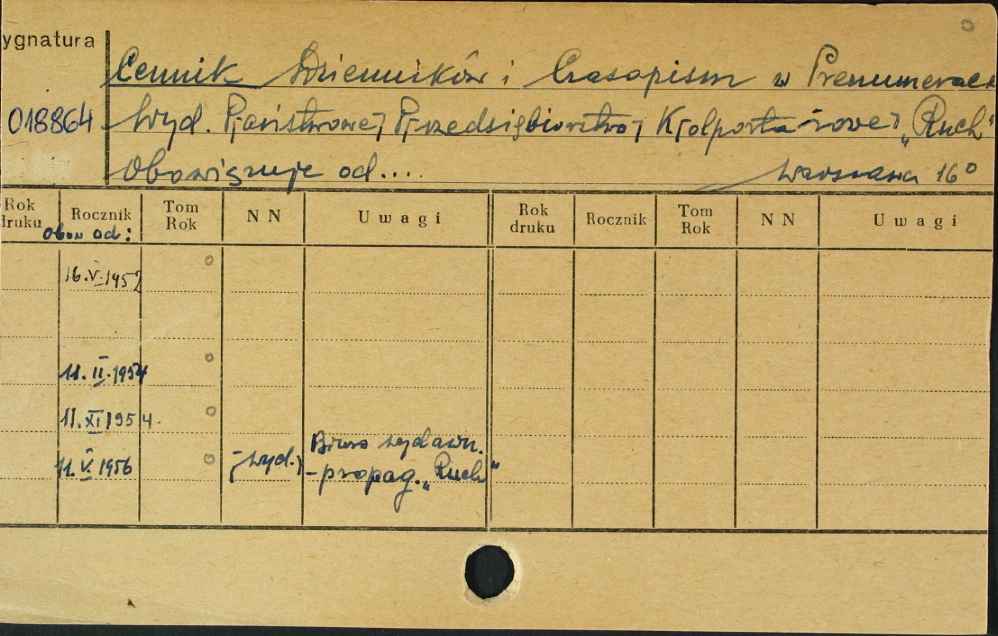 ygnatura
Cennik Dzienników i Czasopism w Prenumerac
018864 Wyd. Państwowe Przedsiębiorstwo Kolportażowe „Ruch"
Obowiązuje od.... Warszawa 16°
Rok druku Rocznik Tom Rok NN Uwagi Rok druku Rocznik Tom Rok NN Uwagi
Obow od:
16.V.1952
11.II.1954
11.XI.1954.
11.V.1956 (wyd.) Biuro wydawn.
-propag. „Ruch"